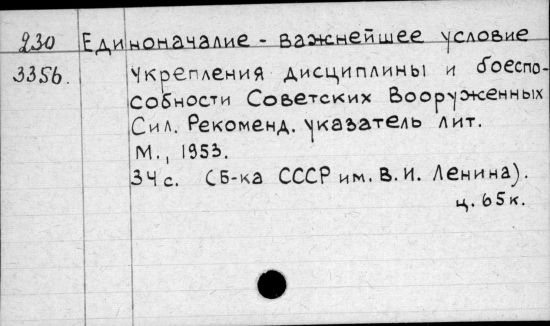 230 Единоначалие - важнейшее условие
335б. укрепления дисциплины и боеспо-
собности Советских Вооруженных
Сил. Рекоменд. указатель лит.
М., 1953.
34 с. (Б-ка СССР им. В. И. Ленина).
ц. 65 к.